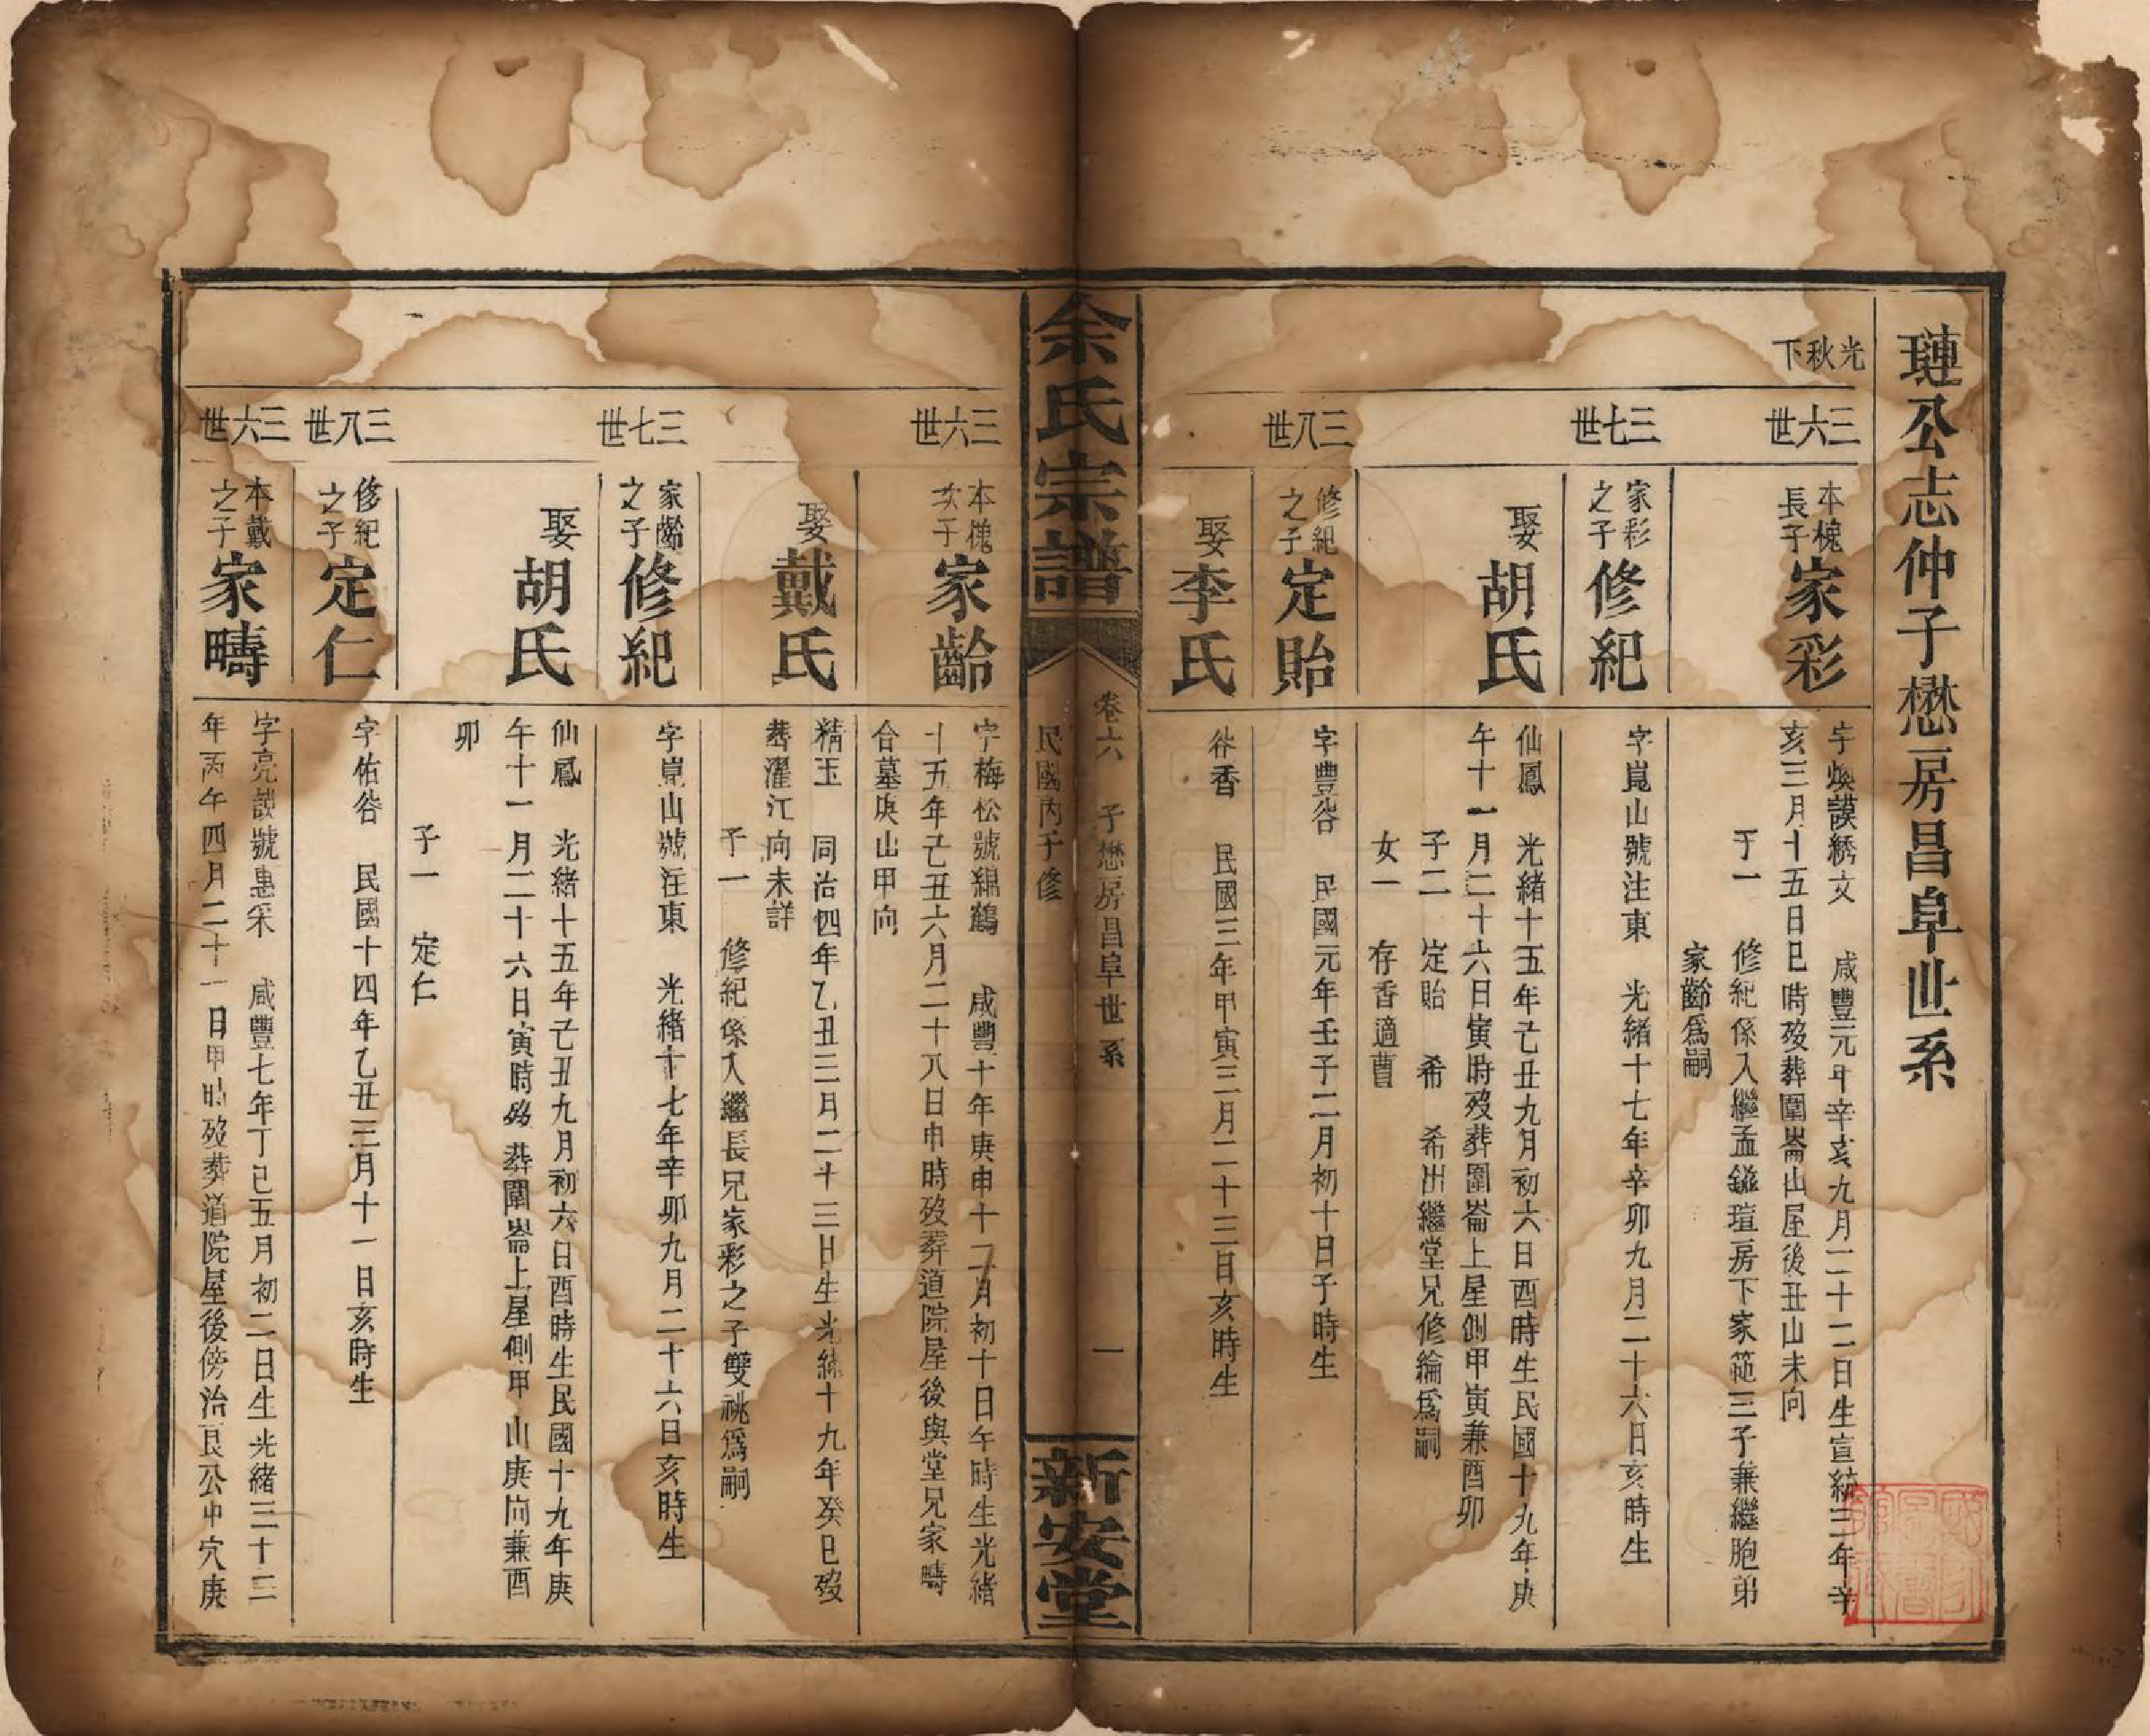 璉公志仲子懋房昌阜世系
光秋下
三六世
本槐長子家彩
字煥謨綉文　咸豐元年辛亥九月二十二日生宣統三年辛
亥三月十五日巳時歿葬圍崙山屋後丑山未向
子一　修紀係入繼孟鎰瑄房下家範三子兼繼胞弟
家齡爲嗣
三七世
家彩之子修紀
字崑山號注東　光緒十七年辛卯九月二十六日亥時生
娶胡氏
仙鳳　光緒十五年己丑九月初六日酉時生民國十九年庚
午十一月二十六日寅時歿葬圍崙上屋側甲寅兼酉卯
子二　定貽　希　希出繼堂兄修綸爲嗣
女一　存香適曹
三八世
修紀之子定貽
字豐谷　民國元年壬子二月初十日子時生
娶李氏
谷香　民國三年甲寅三月二十三日亥時生
余氏宗譜
卷六　子懋房昌阜世系　一
民國丙子修
新安堂
三六世
本槐次子家齡
字梅松號錦鶴　咸豐十年庚申十二月初十日午時生光緒
十五年己丑六月二十八日申時歿葬道院屋後與堂兄家疇
合墓庚山甲向
娶戴氏
精玉　同治四年乙丑三月二十三日生光緒十九年癸巳歿
葬濯江向未詳
子一　修紀係入繼長兄家彩之子雙祧爲嗣
三七世
家齡之子修紀
字崑山號注東　光緒十七年辛卯九月二十六日亥時生
娶胡氏
仙鳳　光緒十五年己丑九月初六日酉時生民國十九年庚
午十一月二十六日寅時歿葬圍崙上屋側甲山庚向兼酉
卯
子一　定仁
三八世
修紀之子定仁
字佑谷　民國十四年乙丑三月十一日亥時生
三六世
本戴之子家疇
字亮談號惠采　咸豐七年丁巳五月初二日生光緒三十二
年丙午四月二十一日申時歿葬道院屋後傍治艮公中穴庚